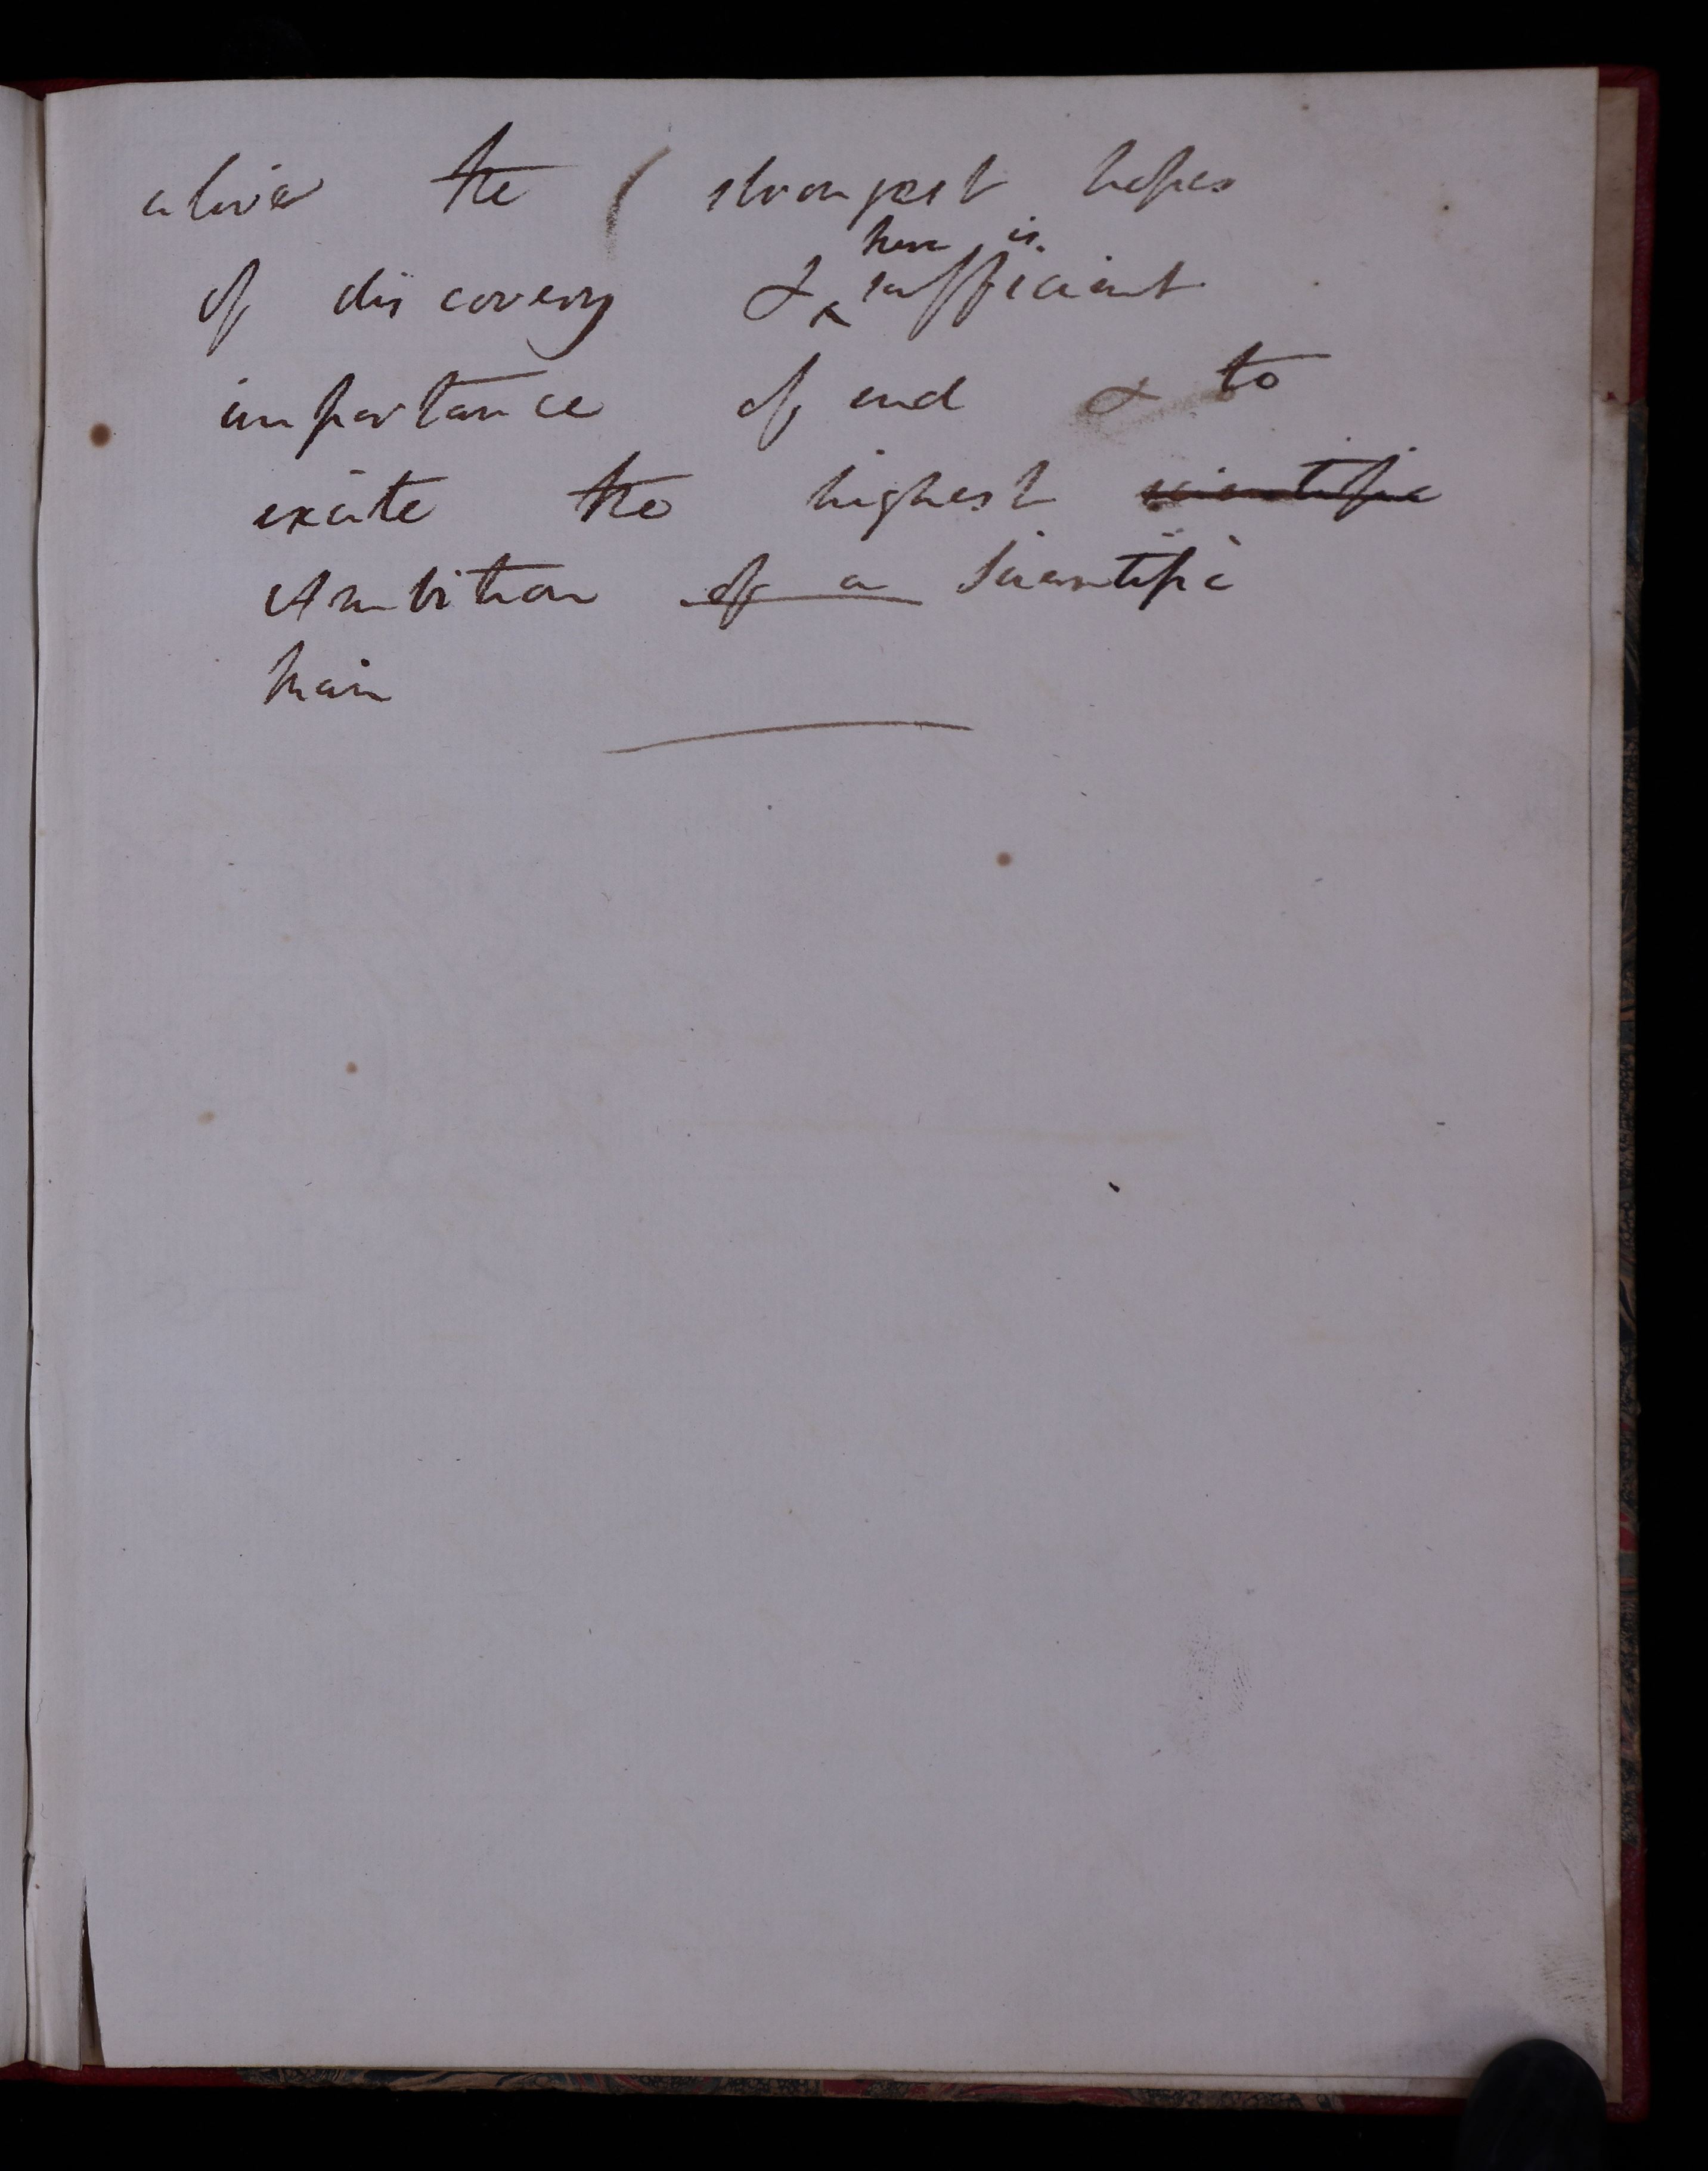 alive the strongest hopes
of discovery & here is sufficient
importance of end & to
excite the highest scientific
Ambition of a Scientific
Man